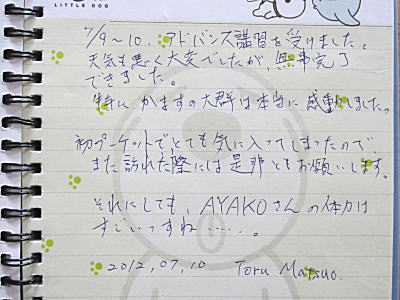 LITTLE DOG
7/9~10、アドバンス講習を受けました。
天気も悪く大変でしたが、無事完了
できました。
特に かますの大群は本当に感動しましたっ
初プーケットでとても気に入ってしまったので、
また訪れた際には是非ともお願いします。
それにしても、AYAKOさんの体力は
すごいっすね……。
2012,07,10 Toru Matsuo.